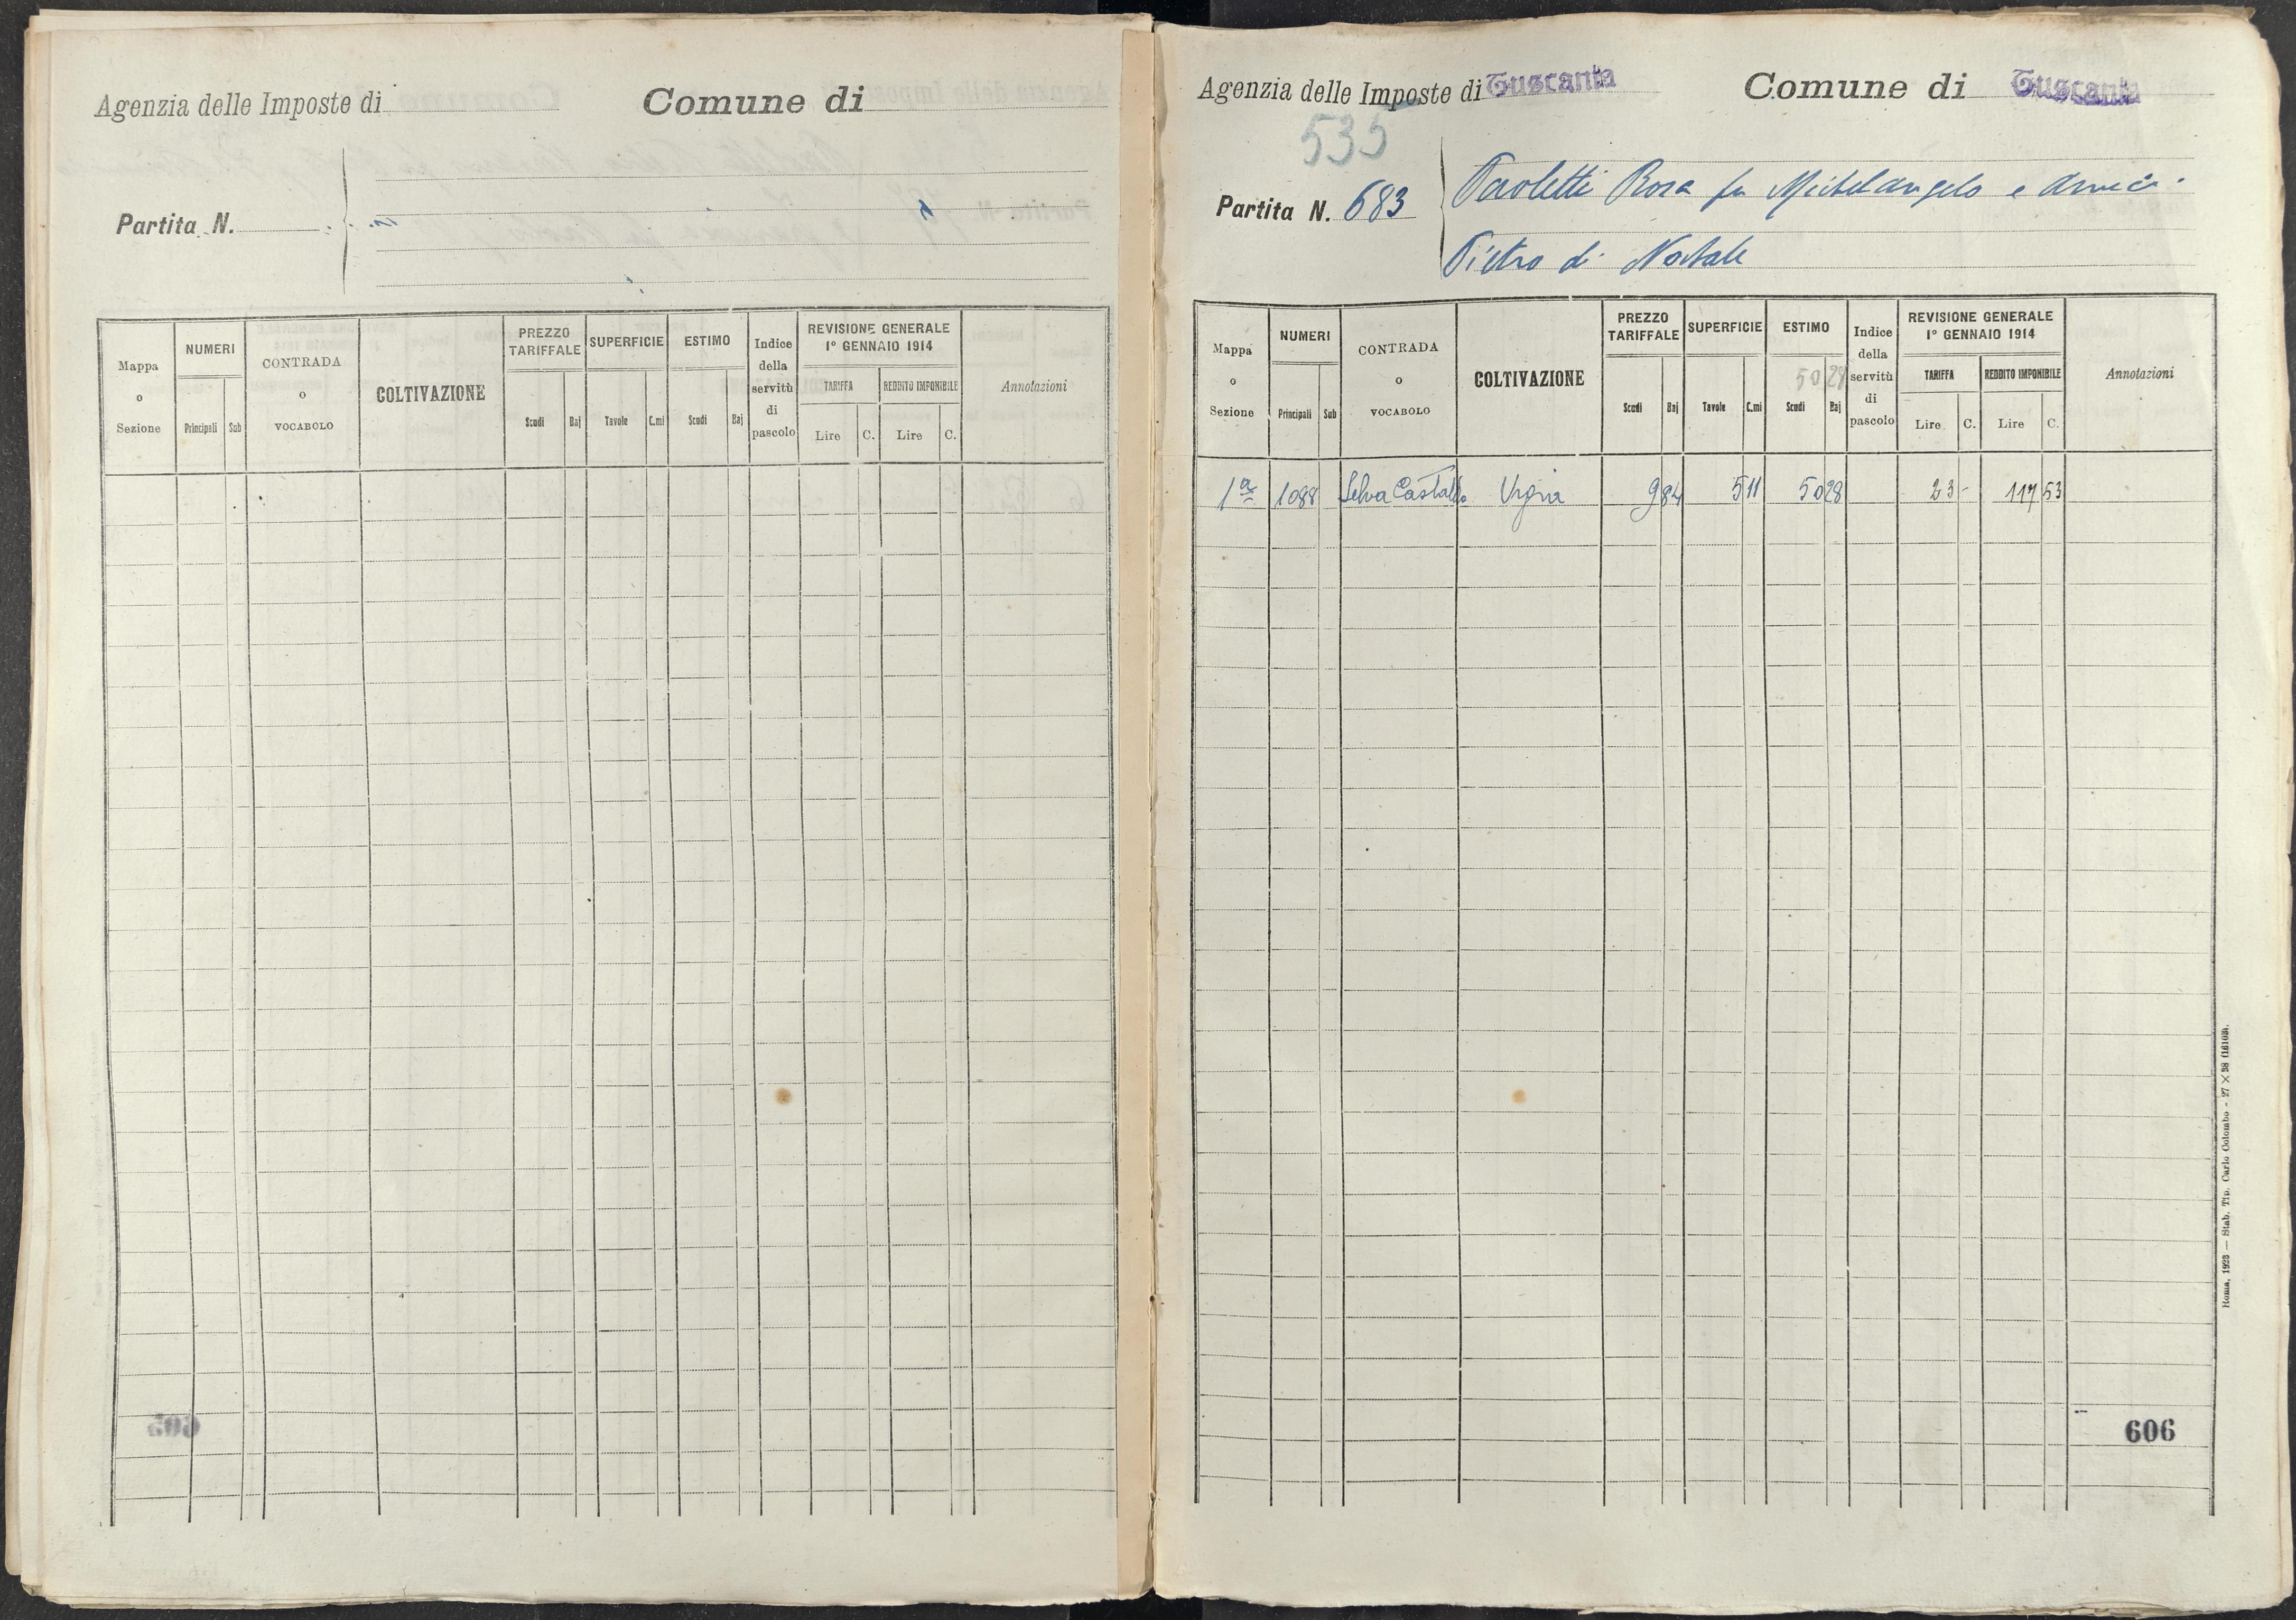 Agenzia delle Imposte di
Comune di
Partita N.
Mappa o Sezione
NUMERI
Principali
Sub
CONTRADA o VOCABOLO
COLTIVAZIONE
PREZZO TARIFFALE
Scudi
Baj
SUPERFICIE
Tavole
C.mi
ESTIMO
Scudi
Baj
Indice della servitù di pascolo
REVISIONE GENERALE
1° GENNAIO 1914
TARIFFA
REDDITO IMPONIBILE
Lire
C.
Lire
C.
Annotazioni
605
Agenzia delle Imposte di Tuscania
Comune di Tuscania
535
Partita N. 683
Paoletti Rosa fu Michelangelo e
Pietro di Natale
Mappa o Sezione
NUMERI
Principali
Sub
CONTRADA o VOCABOLO
COLTIVAZIONE
PREZZO TARIFFALE
Scudi
Baj
SUPERFICIE
Tavole
C.mi
ESTIMO
50 28
Scudi
Baj
Indice della servitù di pascolo
REVISIONE GENERALE
1° GENNAIO 1914
TARIFFA
REDDITO IMPONIBILE
Lire
C.
Lire
C.
Annotazioni
1ª 1088 Selva Vigna 9 84 5 11 50 28 23 - 117 53
606
Roma, 1923 — Stab. Tip. Carlo Colombo - 27 × 38 (16103).